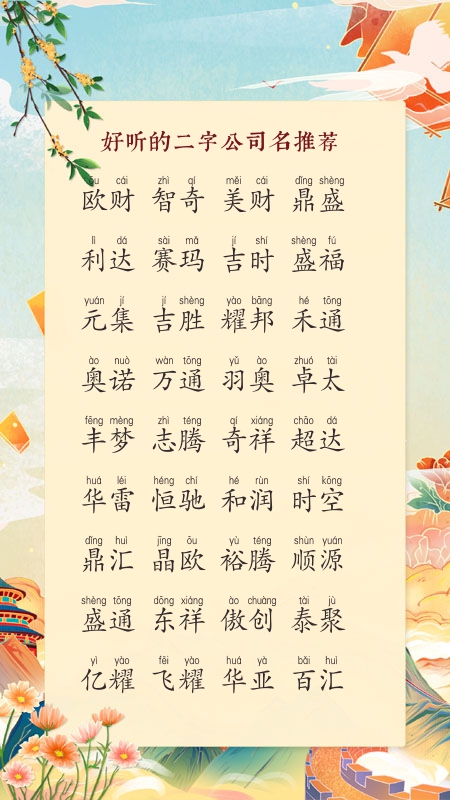 好听的二字公司名推荐
ōu cái zhì qí měi cái dǐng shèng
欧财 智奇 美财 鼎盛
lì dá sài mǎ jí shí shèng fú
利达 赛玛 吉时 盛福
yuán jí jí shèng yào bāng hé tōng
元集 吉胜 耀邦 禾通
ào nuò wàn tōng yǔ ào zhuó tài
奥诺 万通 羽奥 卓太
fēng mèng zhì téng qí xiáng chāo dá
丰梦 志腾 奇祥 超达
huá léi héng chí hé rùn shí kōng
华雷 恒驰 和润 时空
dǐng huì jīng ōu yù téng shùn yuán
鼎汇 晶欧 裕腾 顺源
shèng tōng dōng xiáng ào chuàng tài jù
盛通 东祥 傲创 泰聚
yì yào fēi yào huá yà bǎi huì
亿耀 飞耀 华亚 百汇